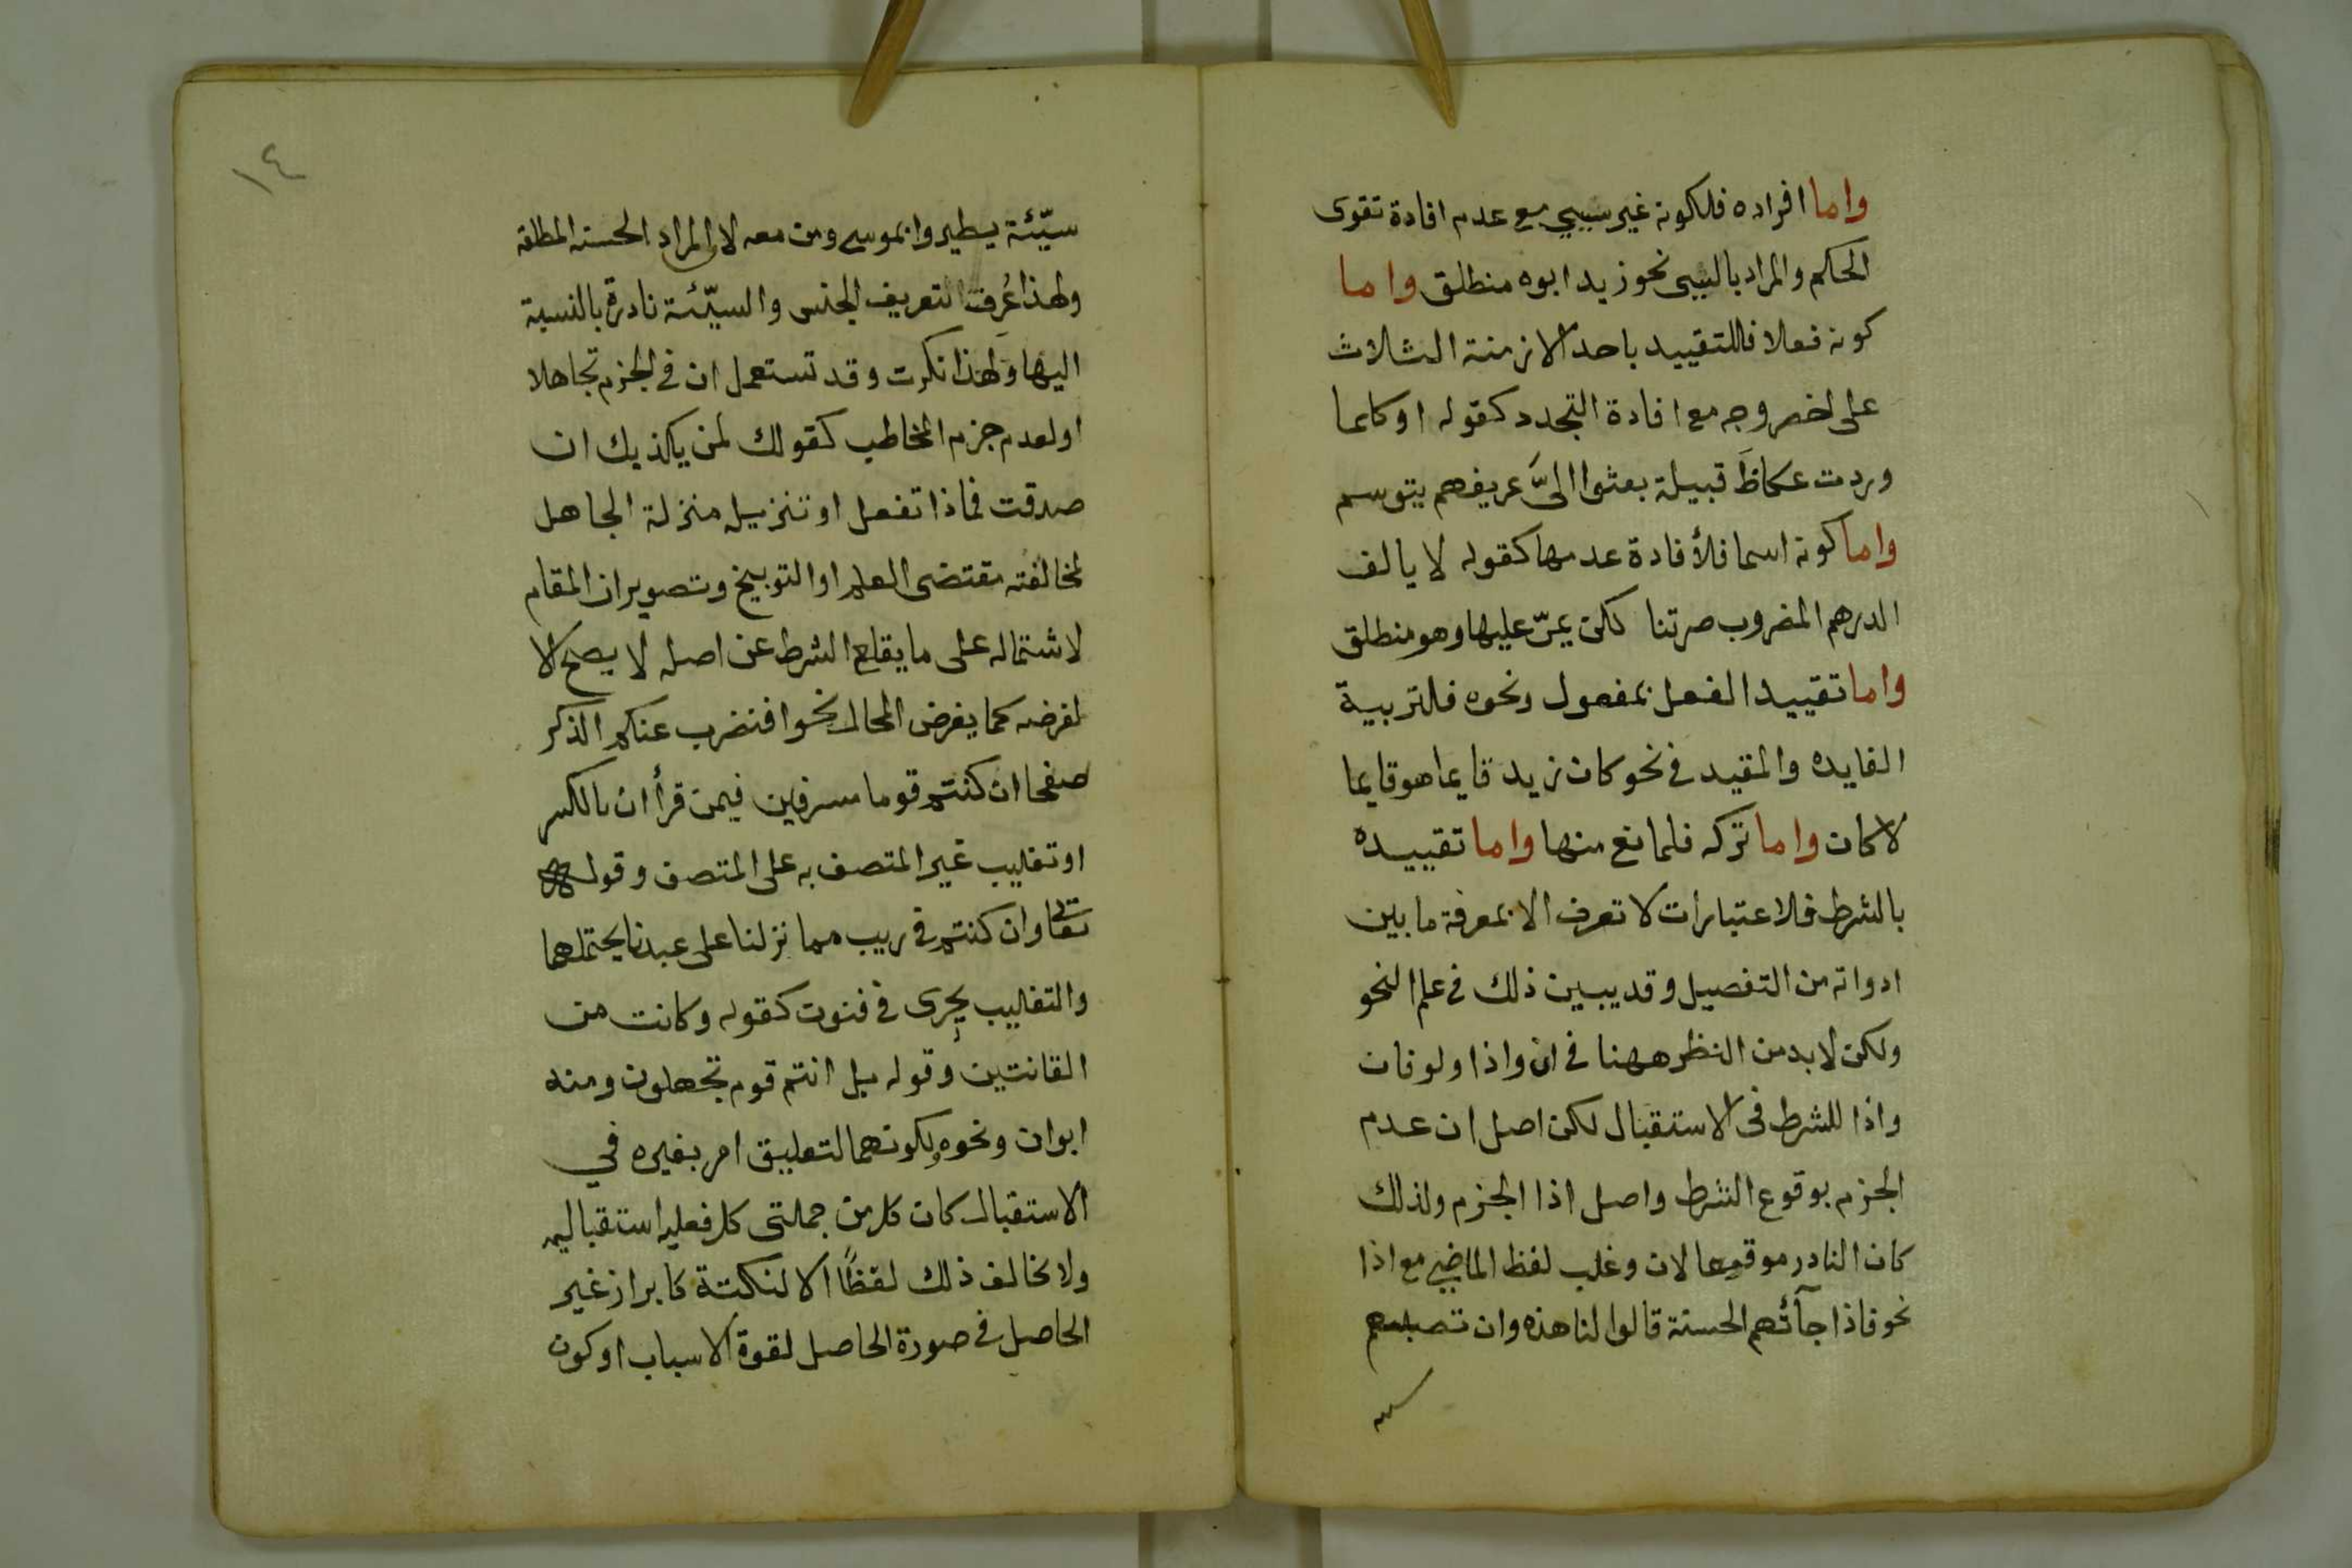 واما افراده فلكونه غير سببي مع عدم افادة تقوى
الحكم والمراد بالسببى نحو زيد ابوه منطلق واما
كونه فعلا فللتقييد باحد الازمنة الثلاث
على اخصر وجه مع افادة التجدد كقوله او كلما
وردت عكاظَ قبيلة بعثوا اليَّ عريفهم يتوسم
واما كونه اسما فلأفادة عدمها كقوله لا يالف
الدرهم المضروب صرتنا لكن يمرّ عليها وهو منطلق
واما تقييد الفعل بمفعول ونحوه فلتربية
الفايده والمقيد في نحو كان زيد قايما هو قايما
لا كان واما تركه فلمانع منها واما تقييده
بالشرط فلاعتبارات لا تعرف الا بمعرفة ما بين
ادواته من التفصيل وقد يبين ذلك في علم النحو
ولكن لابد من النظر ههنا في ان واذا ولو فان
واذا للشرط فى الاستقبال لكن اصل ان عدم
الجزم بوقوع الشرط واصل اذا الجزم ولذلك
كان النادر موقعا لان وغلب لفظ الماضي مع اذا
نحو فاذا جآئتهم الحسنة قالوا لنا هذه وان تصبهم
١٤
سيّئة يطيروا بموسى ومن معه لان المراد الحسنه المطلقة
ولهذا عُرفت تعريف الجنس والسيّئة نادرة بالنسبة
اليها ولهذا نكرت وقد تستعمل ان في الجزم تجاهلا
او لعدم جزم المخاطب كقولك لمن يكذبك ان
صدقت فماذا تفعل او تنزيله منزلة الجاهل
لمخالفته مقتضى العلم او التوبيخ وتصوير ان المقام
لاشتماله على ما يقلع الشرط عن اصله لا يصلح الا
لفرضه كما يفرض المحال نحو افنضرب عنكم الذكر
صفحا ان كنتم قوما مسرفين فيمن قرأ ان بالكسر
او تغليب غير المتصف به على المتصف وقوله
تعالى وان كنتم في ريب مما نزلنا على عبدنا يحتملها
والتغليب يجرى في فنون كقوله وكانت من
القانتين وقوله بل انتم قوم تجهلون ومنه
ابوان ونحوه ولكونهما لتعليق امر بغيره في
الاستقبال كان كل من جملتى كل فعليه استقباليه
ولا يخالف ذلك لفظًا الا لنكتة كابراز غير
الحاصل في صورة الحاصل لقوة الاسباب او كون